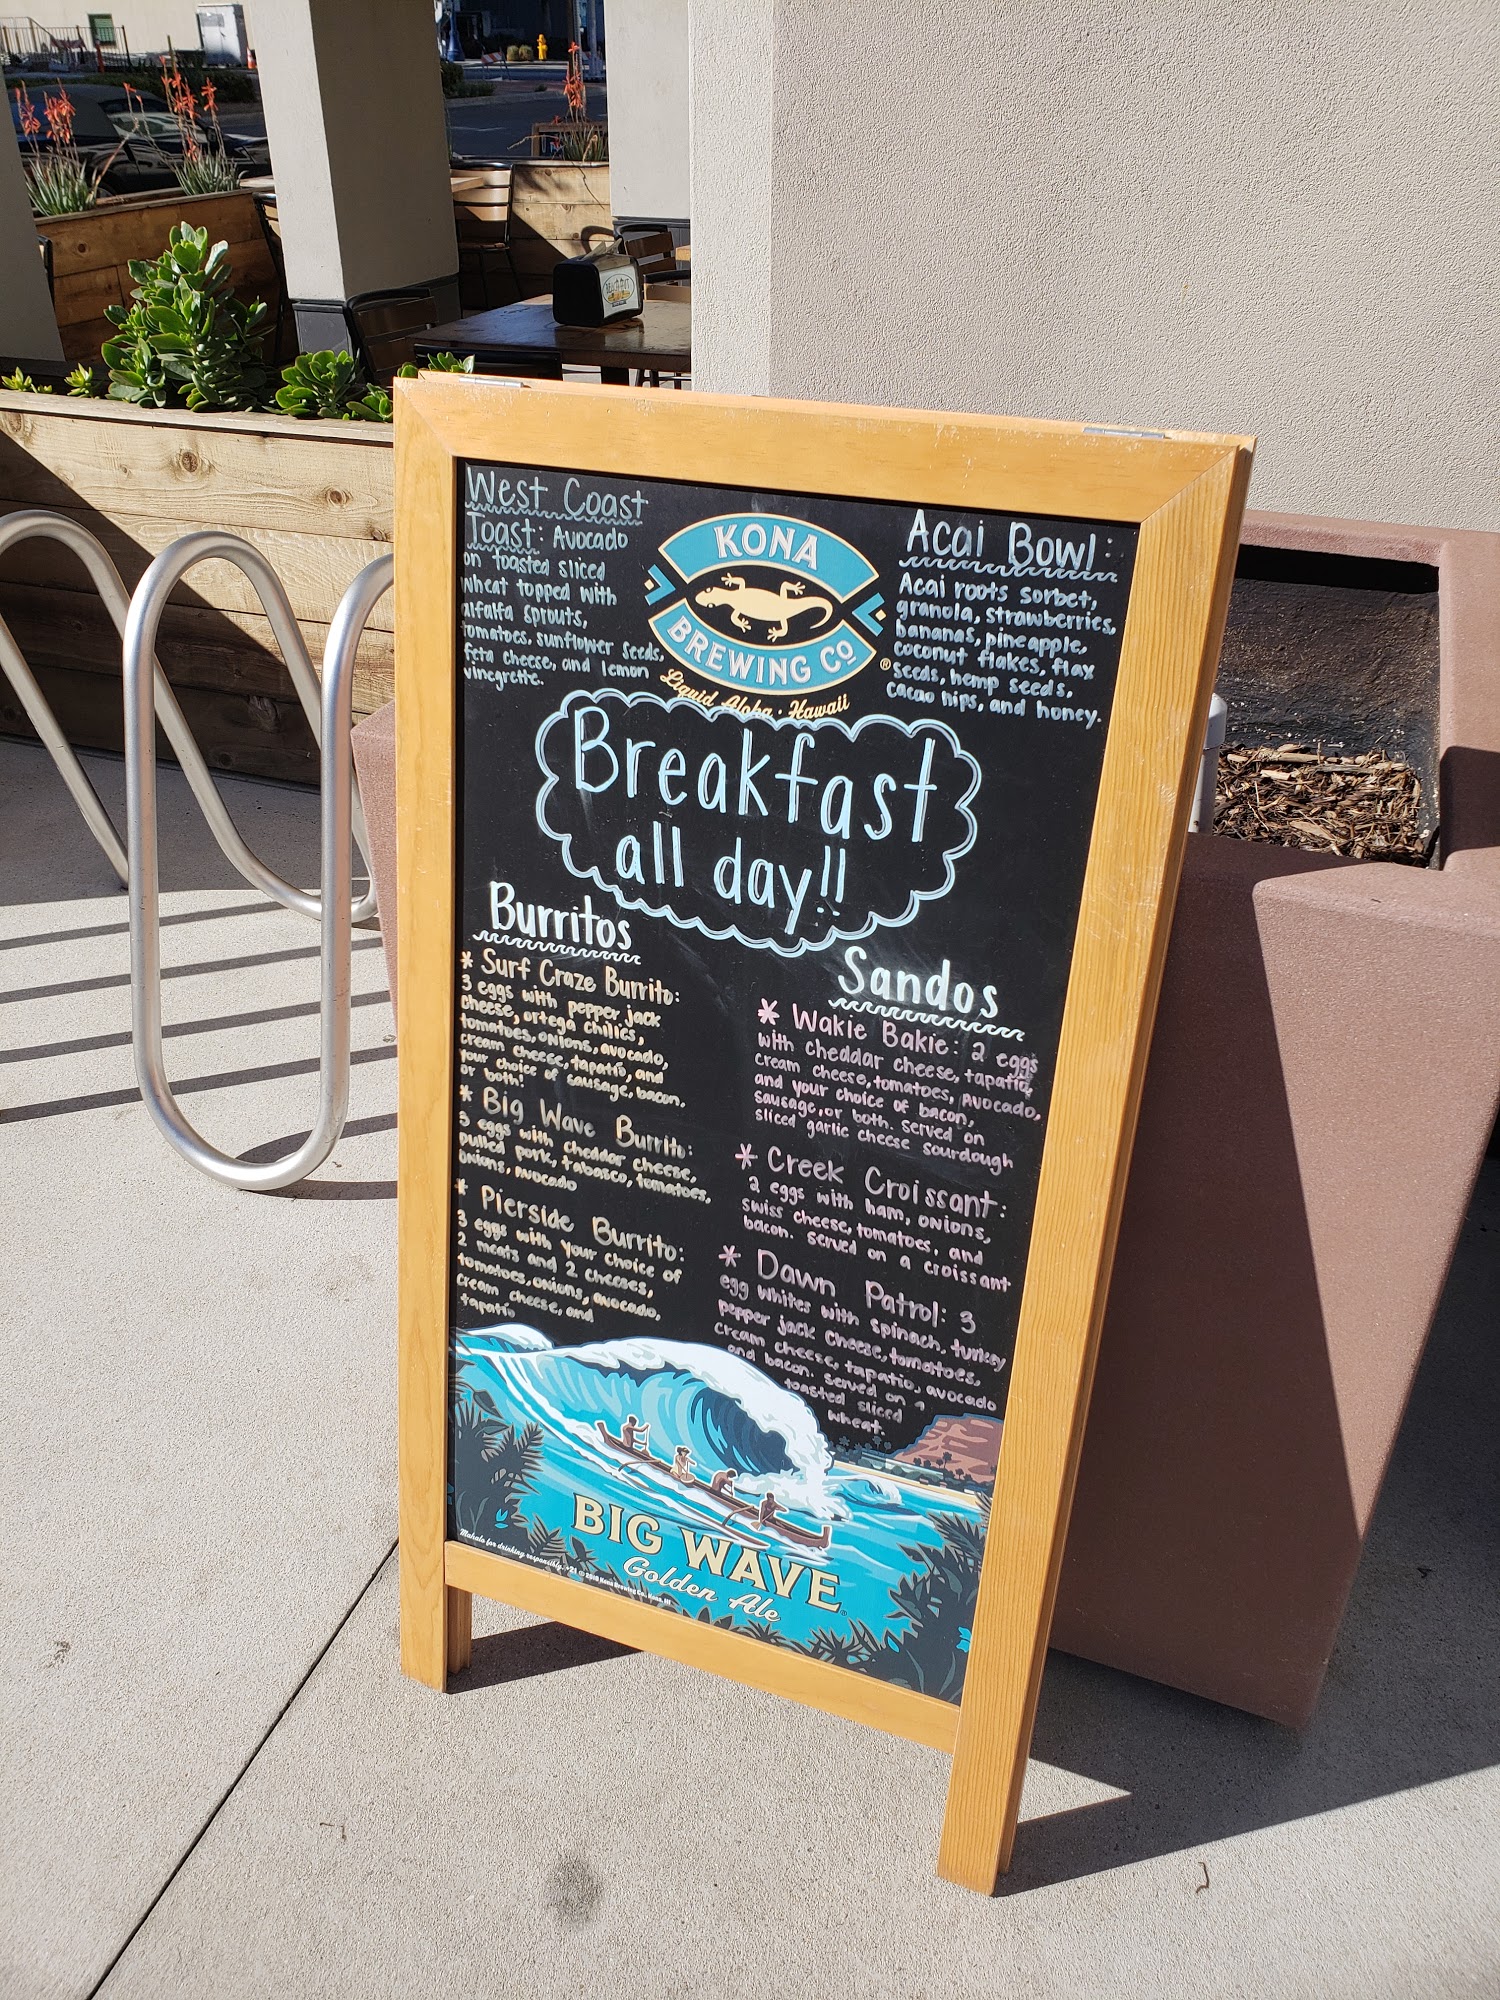 West Coast
Toast: Avocado
on toasted sliced
wheat topped with
alfalfa sprouts,
tomatoes, sunflower seeds,
feta cheese, and lemon
vinegrette.
KONA
BREWING CO
®
Liquid Aloha · Hawaii
Acai Bowl:
Acai roots sorbet,
granola, strawberries,
bananas, pineapple,
coconut flakes, flax
seeds, hemp seeds,
cacao nips, and honey.
Breakfast
all day!!
Burritos
* Surf Craze Burrito:
3 eggs with pepper jack
cheese, ortega chilies,
tomatoes, onions, avocado,
cream cheese, tapatío, and
your choice of sausage, bacon,
or both!
* Big Wave Burrito:
3 eggs with cheddar cheese,
pulled pork, tabasco, tomatoes,
onions, avocado
* Pierside Burrito:
3 eggs with your choice of
2 meats and 2 cheeses,
tomatoes, onions, avocado,
cream cheese, and
tapatío
Sandos
* Wakie Bakie: 2 eggs
with cheddar cheese, tapatío,
cream cheese, tomatoes, avocado,
and your choice of bacon,
sausage, or both. served on
sliced garlic cheese sourdough
* Creek Croissant:
2 eggs with ham, onions,
swiss cheese, tomatoes, and
bacon. served on a croissant
* Dawn Patrol: 3
egg whites with spinach, turkey
pepper jack cheese, tomatoes,
cream cheese, tapatio, avocado
and bacon. served on a
toasted sliced
wheat.
BIG WAVE
Golden Ale
Mahalo for drinking responsibly. +21 © 2018 Kona Brewing Co., Kona, HI